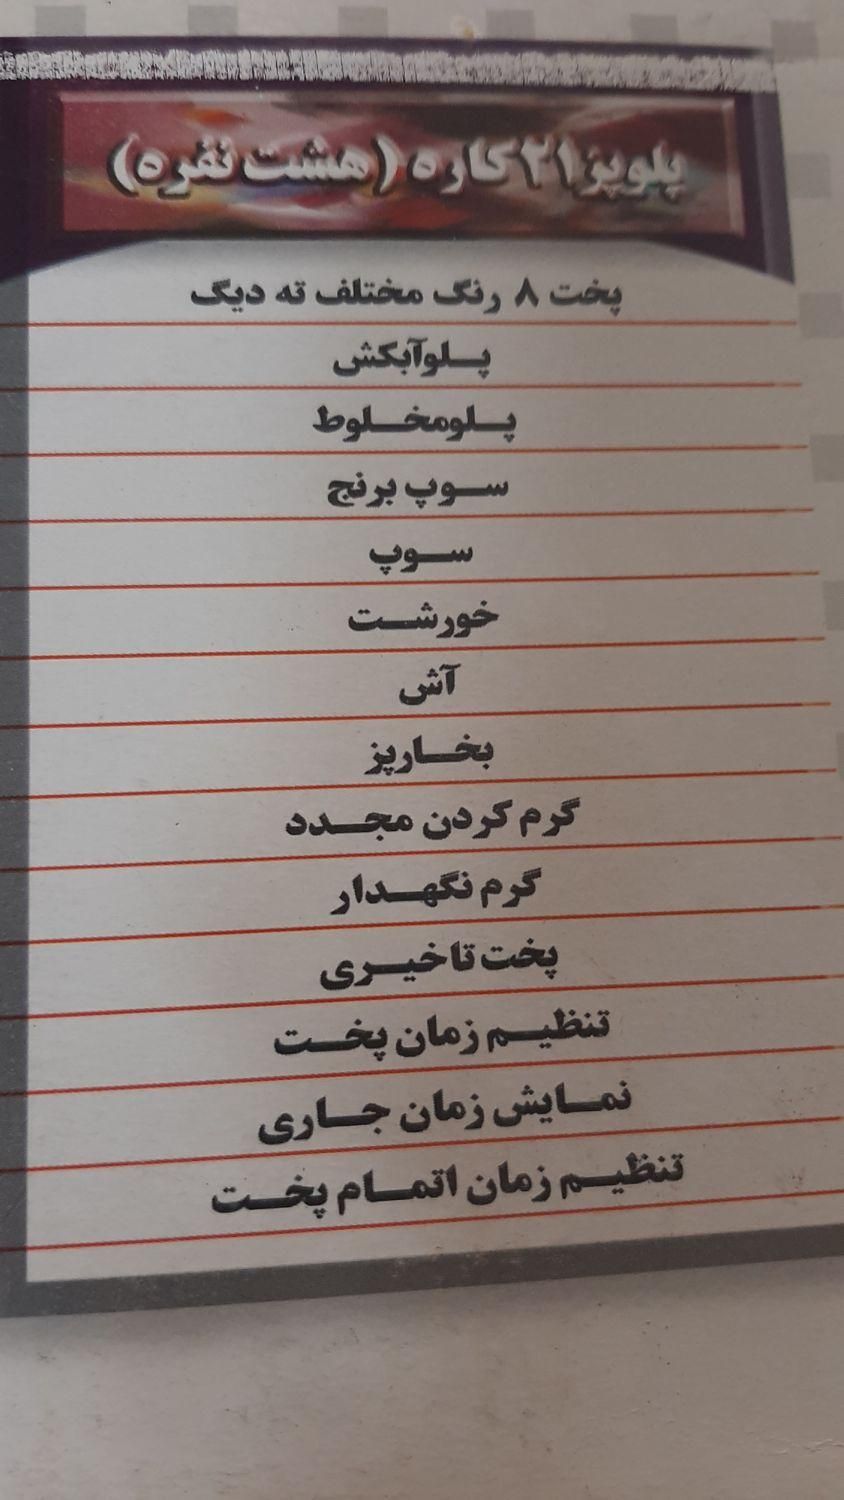 پلوپز ۲۱ کاره (هشت نفره)
پخت ۸ رنگ مختلف ته دیگ
پلوآبکش
پلومخلوط
سوپ برنج
سوپ
خورشت
آش
بخارپز
گرم کردن مجدد
گرم نگهدار
پخت تاخیری
تنظیم زمان پخت
نمایش زمان جاری
تنظیم زمان اتمام پخت